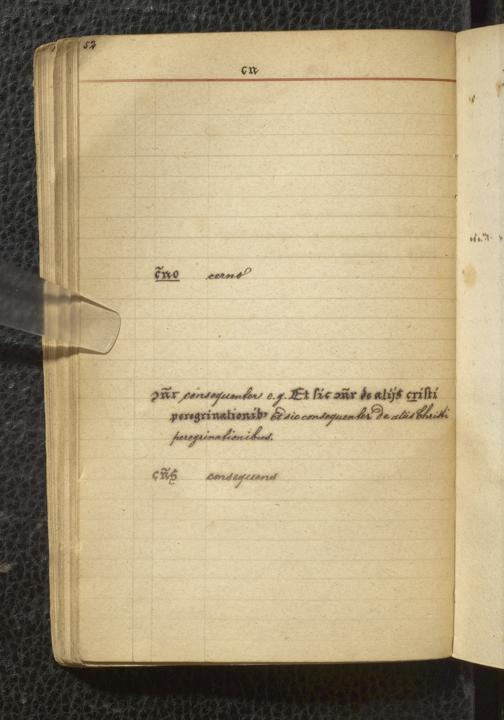 52
cn
c̃no cerno
ↄñr consequenter e.g. Et sic ↄñr de alijs cristi
peregrinationibꝫ Et sic consequenter de aliis Christi
peregrinationibus.
cñs consequens